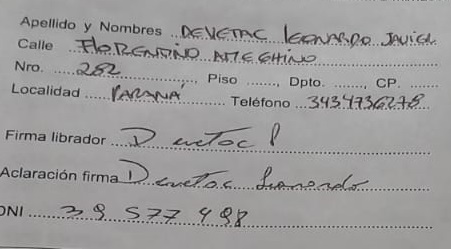 Apellido y Nombres DEVETAC LEONARDO JAVIER
Calle FLORENTINO AMEGHINO
Nro. 282 , Piso ........, Dpto. ........, CP. ........
Localidad PARANÁ Teléfono 3434736278
Firma librador Devetac
Aclaración firma Devetac Leonardo
DNI 39 577 498